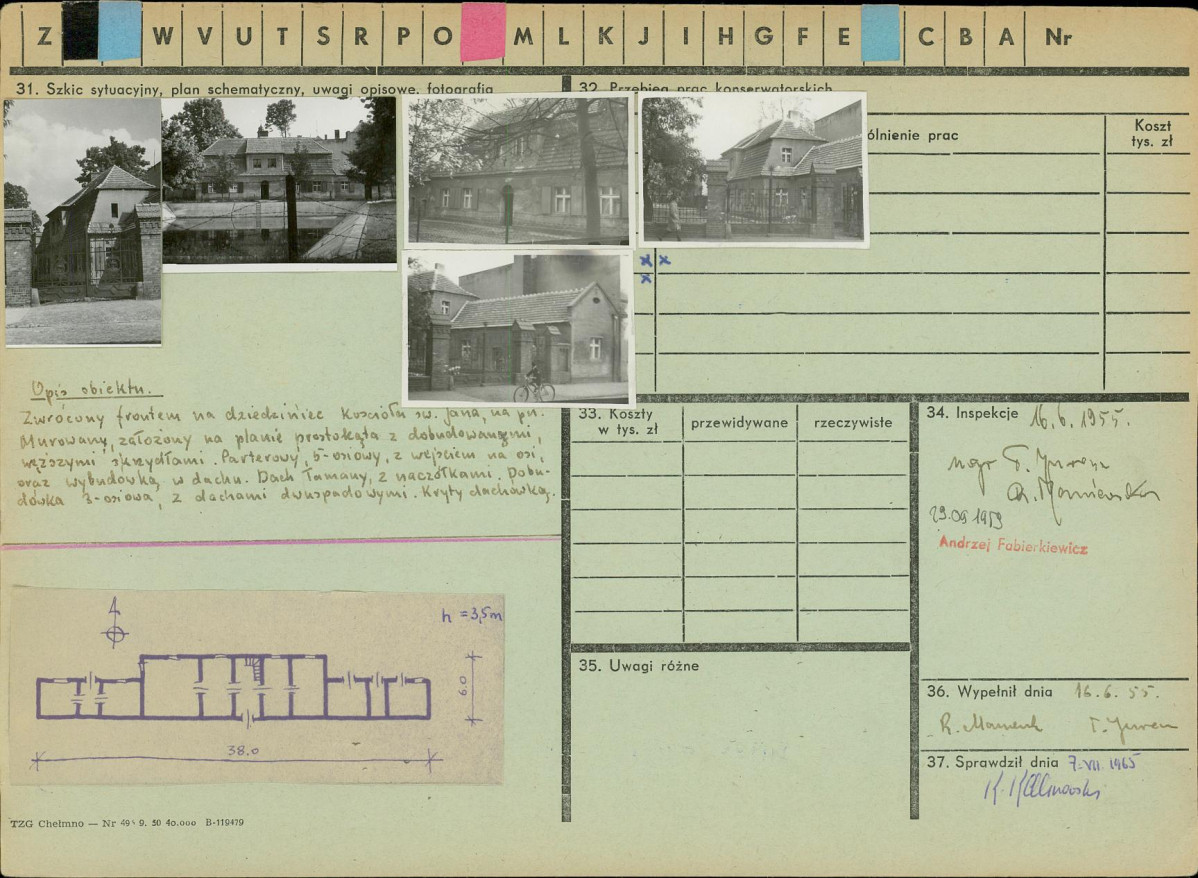 Z W V U T S R P O M L K J I H G F E C B A Nr
31. Szkic sytuacyjny, plan schematyczny, uwagi opisowe, fotografia
32. Przebieg prac konserwatorskich
ólnienie prac
Koszt
tys. zł
x x
x
Opis obiektu.
Zwrócony frontem na dziedziniec Kościoła św. Jana, na pn.
Murowany, założony na planie prostokąta z dobudowanymi,
węższymi skrzydłami. Parterowy, 5-osiowy, z wejściem na osi,
oraz wybudówką w dachu. Dach łamany, z naczółkami. Dobu-
dówka 3-osiowa, z dachami dwuspadowymi. Kryty dachówką.
h = 3,5m
6.0
38.0
TZG Chełmno — Nr 9. 50 40.000 B-119479
33. Koszty
w tys. zł
przewidywane
rzeczywiste
34. Inspekcje 16.6.1955.
mgr
29.09 1959
Andrzej Fabierkiewicz
35. Uwagi różne
36. Wypełnił dnia 16.6.55.
37. Sprawdził dnia 7.VII.1965
K. Kalinowski